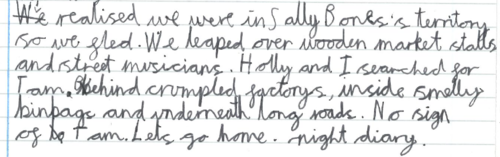 We realised we were in Sally Bones's territory
so we fled. We leaped over wooden market stalls
and street musicians. Holly and I searched for
Tam. Behind crumpled factorys, inside smelly
binbags and underneath long roads. No sign
of Tam. Lets go home. night diary.